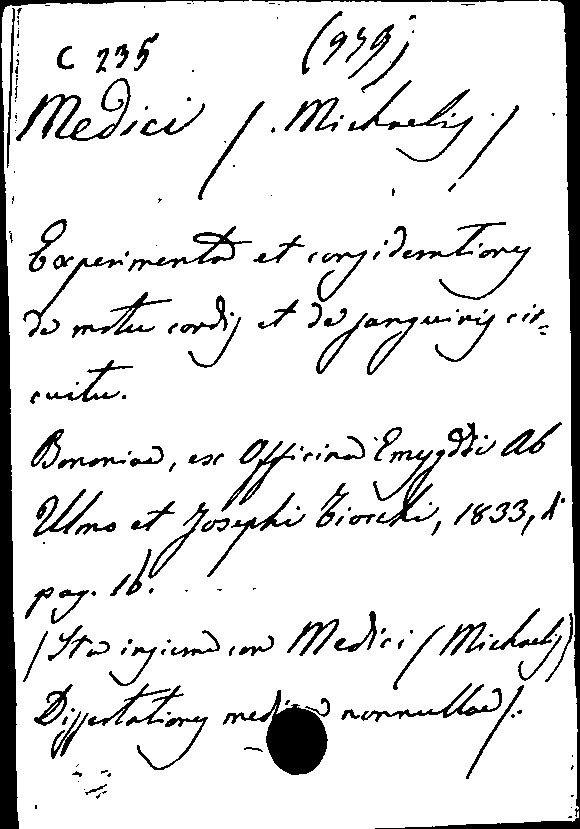 C 235 (939)
Medici (Michaelis)
Experimenta et considerationes
de motu cordis et de sanguinis cir-
cuitu.
Bononiae, ex Officina Emygdii Ab
Ulmo et Josephi Tiocchi, 1833, di
pag. 16.
(Sta insieme con Medici (Michaelis)
Dissertationes medicae nonnullae).